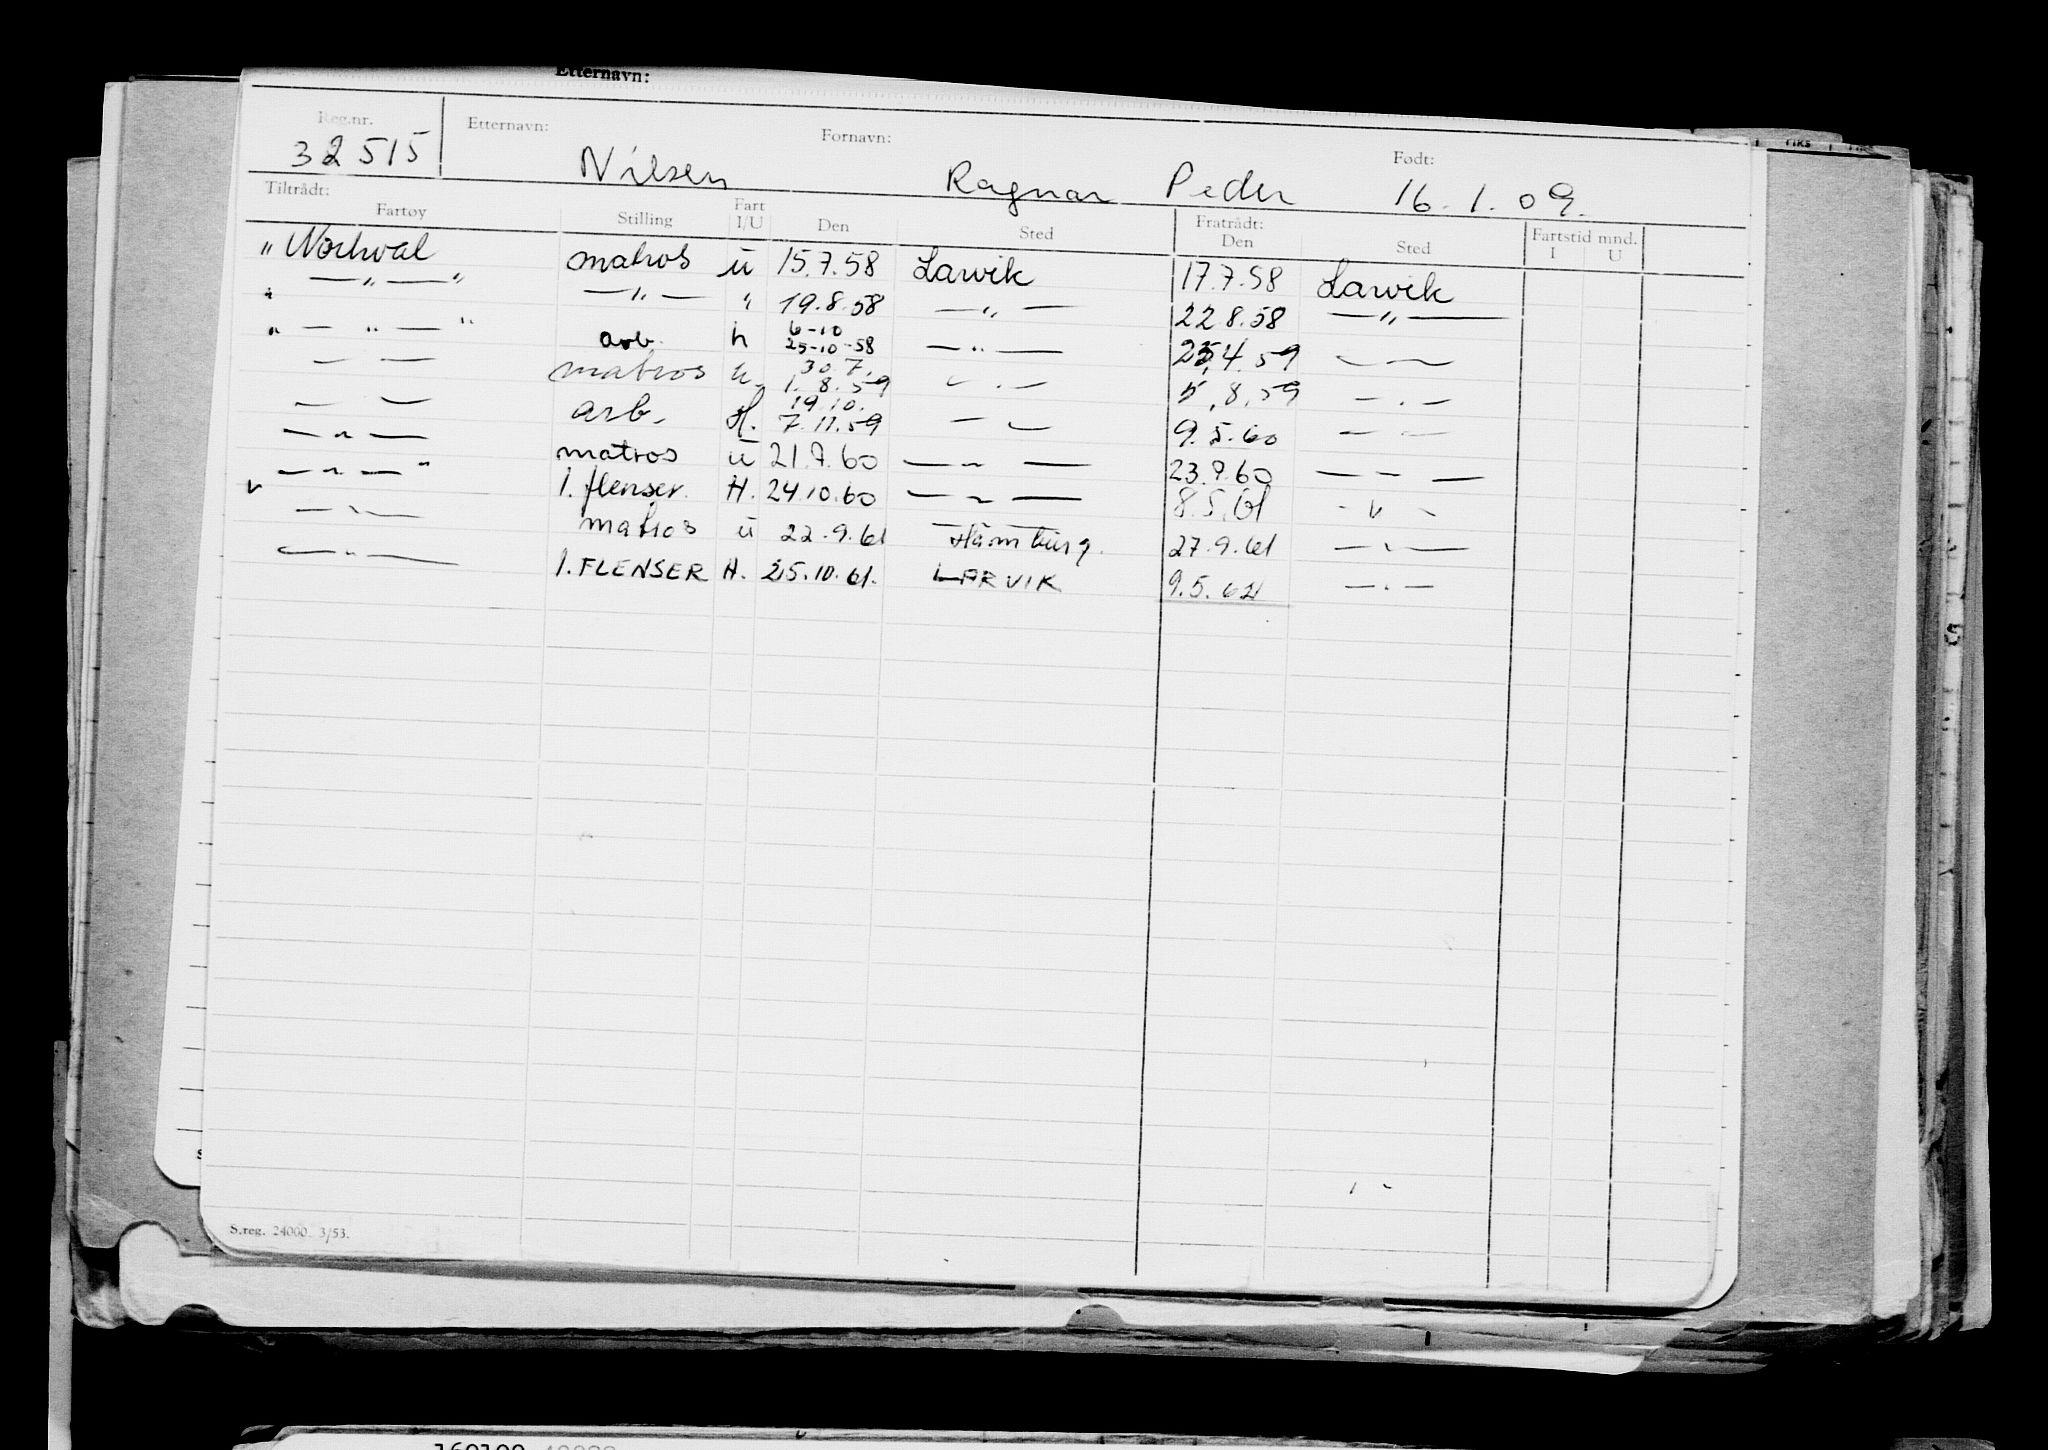 Etternavn:
Reg.nr. Etternavn: Fornavn: Født:
32515 Nilsen Ragnar Peder 16.1.09.
Tiltrådt: Fratrådt: Fartstid mnd.
Fartøy Stilling Fart I/U Den Sted Den Sted I U
" Norhval matros u 15.7.58 Larvik 17.7.58 Larvik
— " — " — " — " 19.8.58 — " — 22 8.58 — " —
" — " — " arb. h 6-10 25-10-58 — " — 4.59 — —
— — matros u. 30.7. 1.8.59 — . — 5.8.59 — . —
— . — arb. H. 19.10. 7.11.59 — — 9.5.60 — —
— " — matros u 21.7.60 — " — 23.7.60 — — —
— " — " — " 1. flenser. H. 24.10.60 — " — 8.5.61 - " -
— " — matros u 22.9.61 Hamburg. 27.9.61 — " —
— " — 1. FLENSER H. 25.10.61. LARVIK 9.5.62 — . —
S.reg. 24000. 3/53.